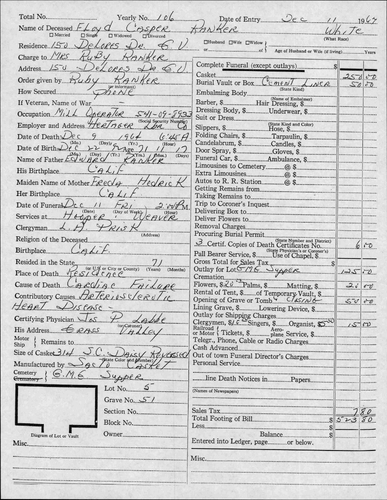 Total No. Yearly No. 106 Date of Entry Dec 11 1964
Name of Deceased Floyd Casper Ranker White
Married Single Widowed Divorced Husband Wife Widow of
Residence 150 Delores Dr. G.V. Age of Husband or Wife (if living) Years
Charge to Mrs Ruby Ranker
Address 150 Delores Dr G.V.
Order given by Ruby Ranker
How Secured Same
If Veteran, Name of War
Occupation Mill Operator 541-09-8933
Employer and Address Lbr Co
Date of Death Dec 9 1964
Date of Birth Dec 22
Name of Father Edward Ranker
His Birthplace Calif
Maiden Name of Mother Freda Hedrick
Her Birthplace Calif
Date of Funeral Dec 11 Fri 2.00 PM
Services at Hooper & Weaver
Clergyman L.H. Prisk
Religion of the Deceased
Birthplace Calif
Resided in the State 71
Place of Death Residence
Cause of Death Cardiac Failure
Contributory Causes Arteriosclerotic
Heart Disease
Certifying Physician Jos P
His Address Grass Valley
Motor Ship Remains to
Size of Casket
Manufactured by Sacto Casket
Cemetery Crematory
Lot No. 5
Grave No. 51
Section No.
Block No.
Owner
Diagram of Lot or Vault
Misc.
Complete Funeral (except outlays) $
Casket 250 00
Burial Vault or Box Cement Liner 50 00
(State Kind)
Embalming Body
(Name of Embalmer)
Barber, $ Hair Dressing, $
Dressing Body, $ Underwear, $
Suit or Dress
(State Kind and Color)
Slippers, $ Hose, $
Folding Chairs, $ Tarpaulin, $
Candelabrum, $ Candles, $
Door Spray, $ Gloves, $
Funeral Car, $ Ambulance, $
Limousines to Cemetery @ $
Extra Limousines @ $
Autos to R. R. Station @ $
Getting Remains from
Taking Remains to
Trip to Coroner's Inquest
Delivering Box to
Deliver Flowers to
Removal Charges
Procuring Burial Permit
(State Number and District)
3 Certified Copies of Death Certificates No. 6 00
Pall Bearer Service, $ Use of Chapel, $
Gross Total for Sales Tax $
Outlay for Lot 125 00
Cemetery
Flowers, $ Palms, $ Matting, $
Rental of Tent, $ of Temporary Vault, $
Opening of Grave or Tomb + Closing 50 00
Lining Grave, $ Lowering Device, $
Outlay for Shipping Charges
Clergymen, $ Singers, $ Organist, $ 15 00
Railroad or Motor Tickets, $ Aero-plane Service, $
Telegr., Phone, Cable or Radio Charges
Cash Advanced
Out of town Funeral Director's Charges
Personal Service
line Death Notices in Papers
(Names of Newspapers)
Sales Tax 7 80
Total Footing of Bill $ 523 80
Less
Balance $
Entered into Ledger, page or below.